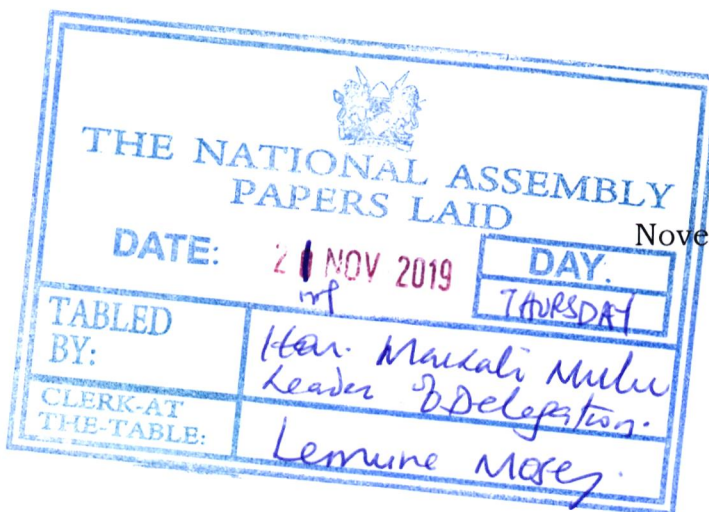 THE NATIONAL ASSEMBLY
PAPERS LAID
Nove
DATE: 21 NOV 2019 DAY.
THURSDAY
TABLED
BY:
Hon. Makali Mulu
Leader of Delegation.
CLERK-AT
THE-TABLE:
Lemuna Mosey.